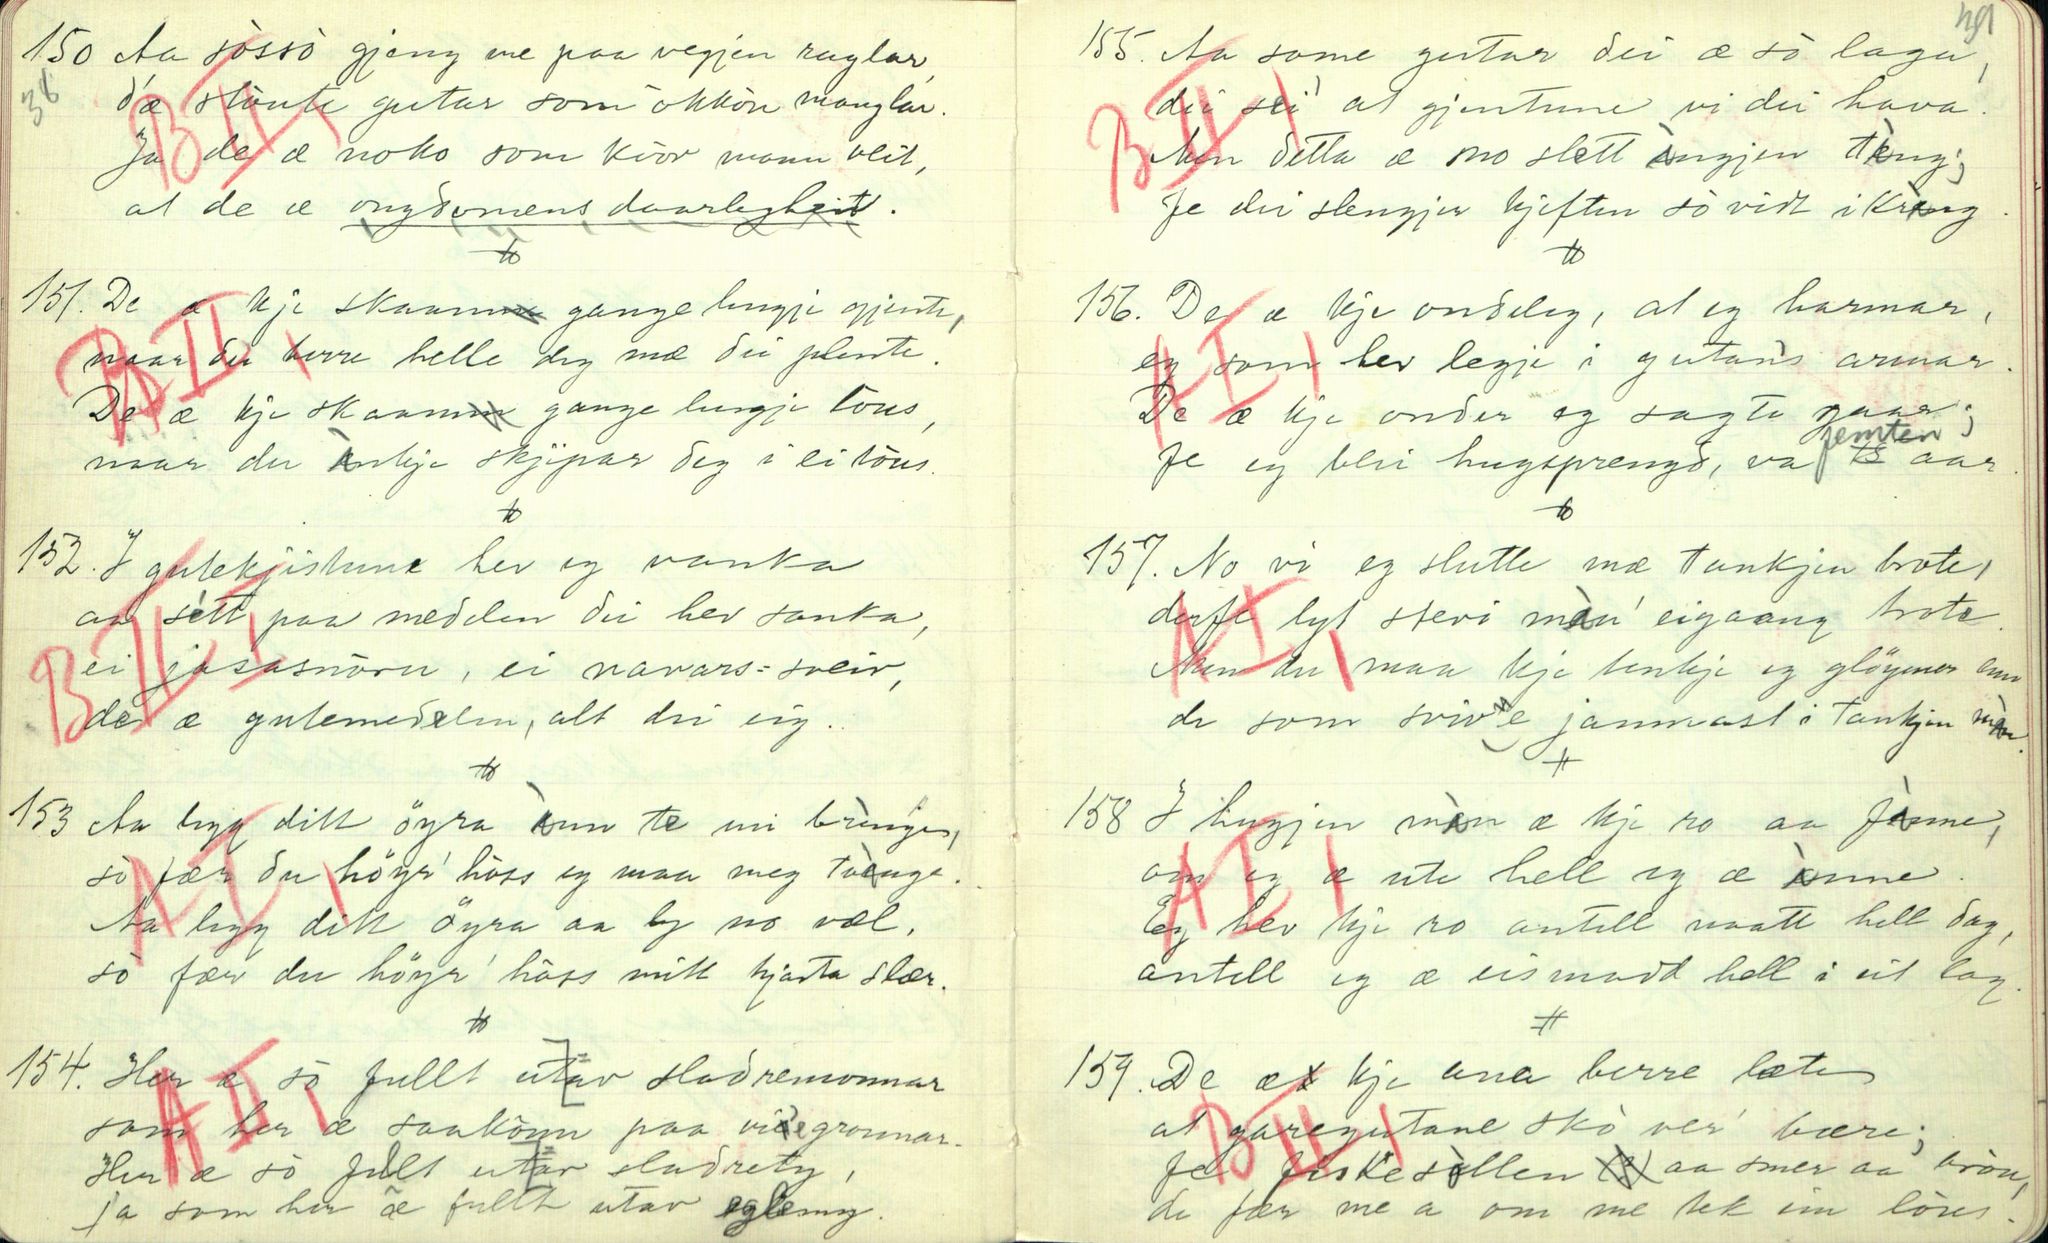 150 Aa sòssò gjeng me paa vegjen raglar,
38
d'æ stoute gutar som okkòn manglar.
Ja de æ noko som kvor mann veit,
at de æ ongdomens daarlegheit.
151. De æ kje skaamm gange lengje gjente,
naar du berre helle deg mæ dei plente.
De æ kje skaamm gange lengje lous,
naar du inkje skjipar deg i ei tous.
152. I gutekjistune hev eg vanka
aa sett paa medelen dei hev sanka,
ei jasasnòru, ei navars-sveiv,
de æ gutemedelen, alt dei eig.
153 Aa legg ditt öyra inn te mi bringe,
so fær du höyr' hòss eg maa meg tvinge.
Aa legg ditt öyra aa ly no væl,
sò fær du höyr' hòss mitt hjarta slær.
154. Her æ sò fullt utav sladremonnar
som her æ saakònn paa vide gronnar.
Her æ sò fullt utav sladrety,
ja som her æ fullt utav eglemy.
191
155. Aa some gutar dei æ sò laga,
dei sei at gjentune vi dei hava.
Men detta æ no slett ingjen ting;
fe dei slengjer kjeften sò vidt ikring.
156. De æ kje ondeleg, at eg harmar,
eg som hev legje i gutans armar.
De æ kje onder eg sagte gaar;
femten
fe eg blei hugsprengd, va 15 aar.
157. No vi eg slutte mæ tankjen brote,
derfe lyt stevi min eigaang trote.
Men du maa kje tenkje eg glöymer enn
de som svive jammast i tankjen min.
158 I hugjen min æ kje ro aa finne,
om eg æ ute hell eg æ inne.
Eg hev kje ro antell naatt hell dag,
antell eg æ eismadt hell i eit lag.
159. De æ kje ana berre læte
at garegutane skò ver' bære;
fe fiskesòllen aa smer aa bròu,
de fær me a om me tek ein lòus.